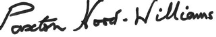 Paxton Hood-Williams